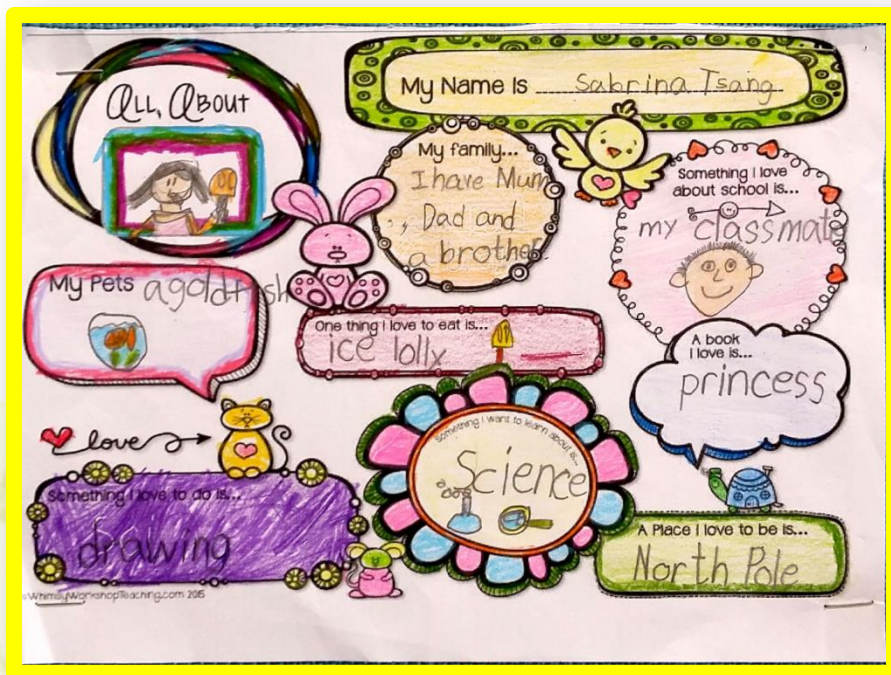 All About
My Name Is Sabrina Tsang
My family...
I have Mum
, Dad and
a brother
Something I love
about school is...
my classmate
My Pets a goldfish
One thing I love to eat is...
ice lolly
A book
I love is...
princess
love
Something I want to learn about is...
Science
Something I love to do is...
drawing
A Place I love to be is...
North Pole
©WhimsyWorkshopTeaching.com 2015